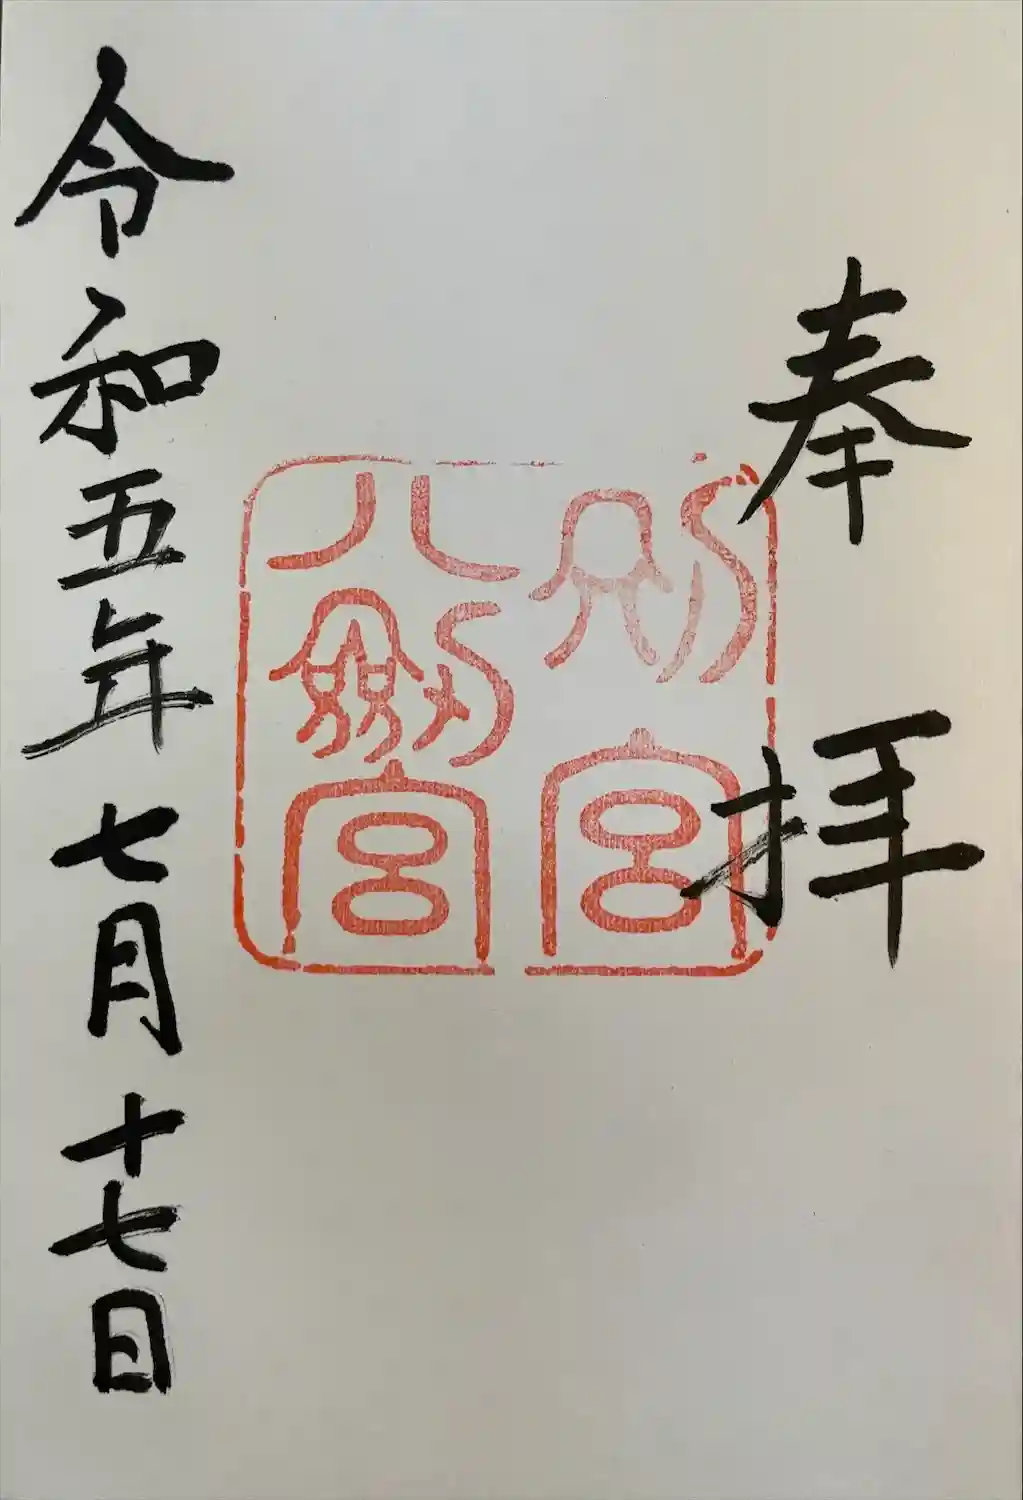 奉拝
別宮
八劔宮
令和五年七月十七日